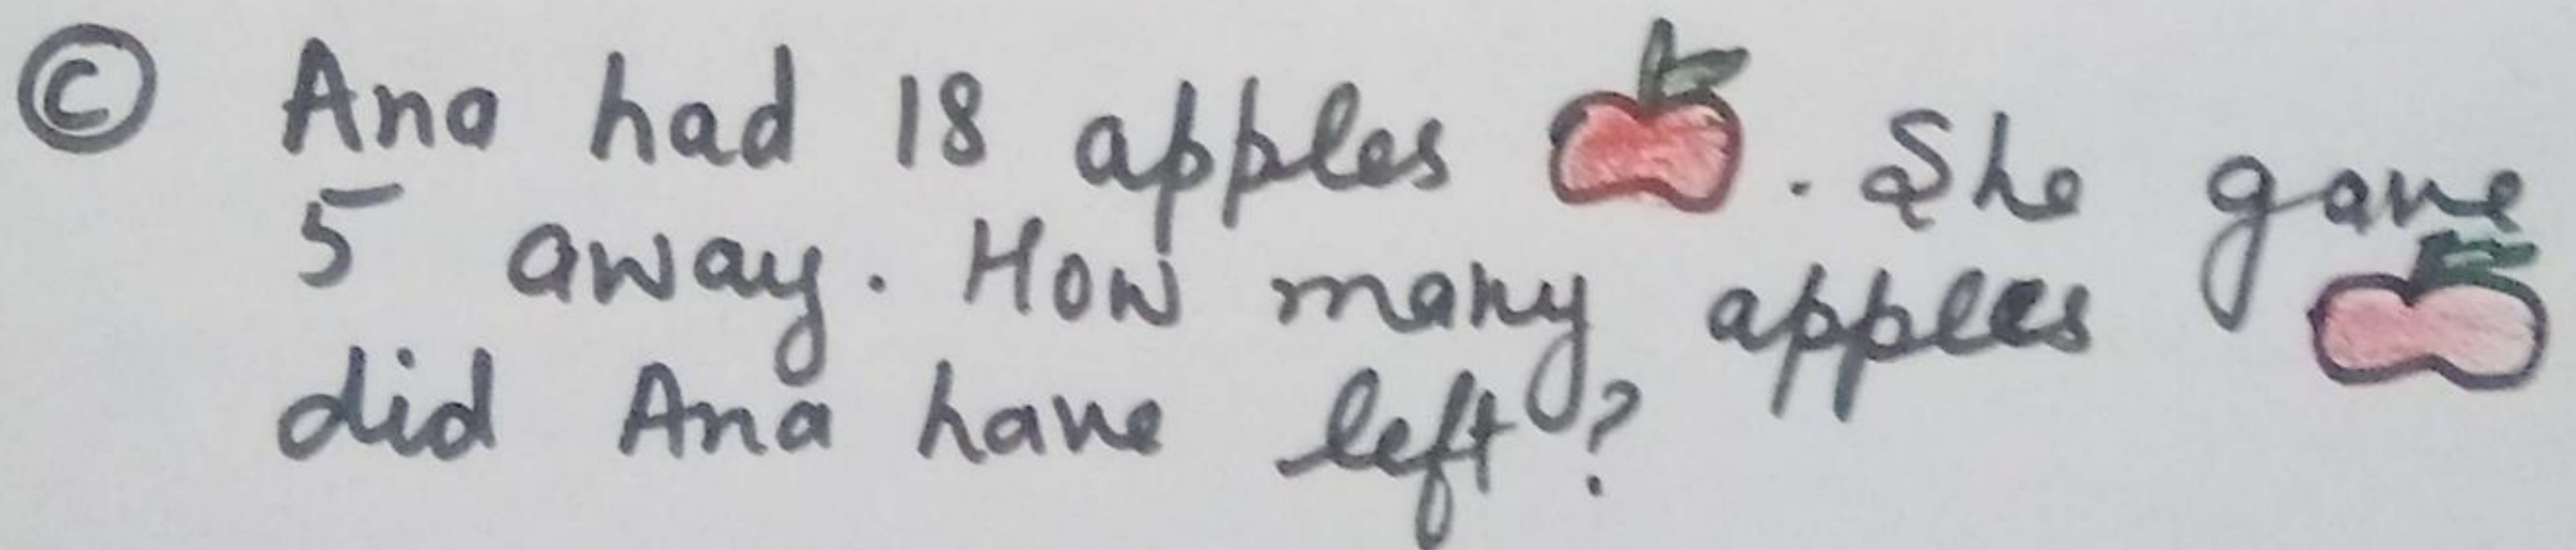 © Ana had 18 apples . She gave
5 away. How many apples
did Ana have left?